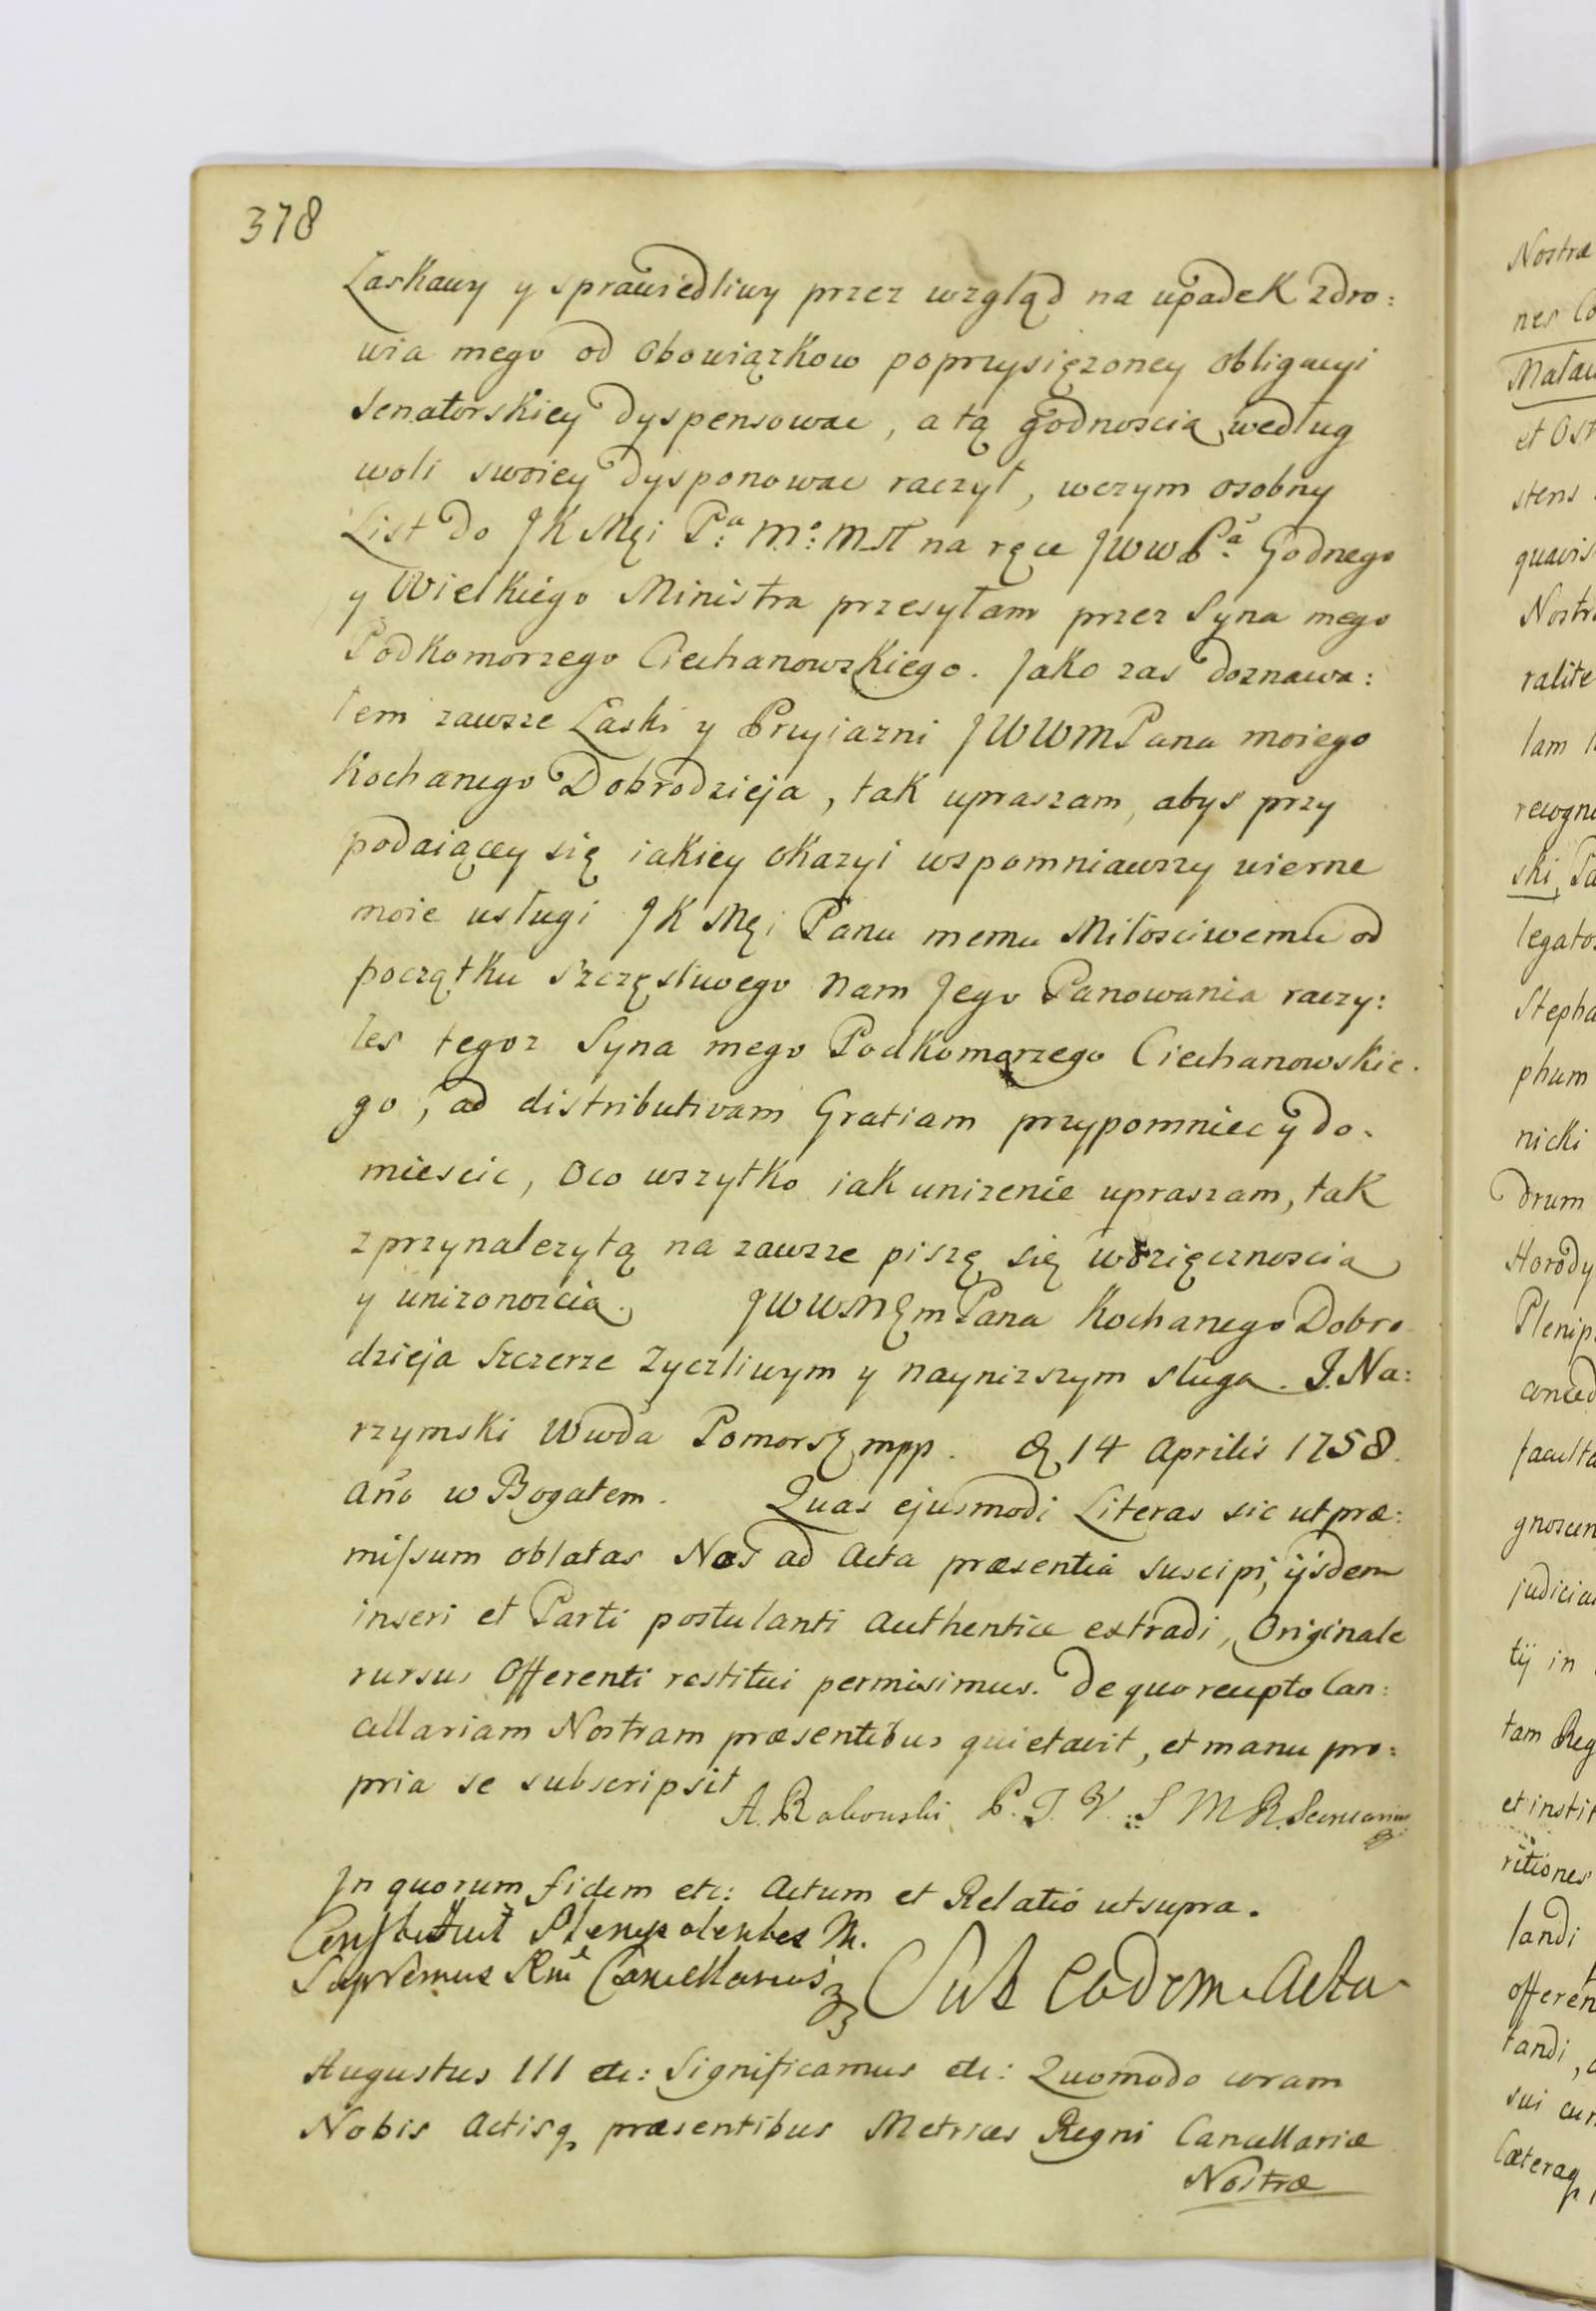 378
Łaskawy y sprawiedliwy przez wzgląd na upadek zdro:
wia mego od Obowiązkow poprzysięzoney Obligacyi
Senatorskiey dyspensowac, a tą godnoscią według
woli swoiey dysponowac raczył, wczym osobny
List do JK Mći Pa: Mo: Mił na ręce JWWPa: Godnego
y Wielkiego Ministra przesyłam przez Syna mego
Podkomorzego Ciechanowskiego. Jako zas doznawa:
łem zawsze Łaski y Przyiazni JWWMPana moiego
Kochanego Dobrodzieja, tak upraszam, abys przy
podaiącey się iakiey okazyi wspomniawszy wierne
moie usługi JK Mći Panu memu Miłosciwemu od
początku szczęsliwego nam Jego Panowania raczy:
łes tegoz Syna mego Podkomorzego Ciechanowskie-
go, ad distributivam Gratiam przypomniec y do-
miescic, Oco wszytko iak unizenie upraszam, tak
z przynalezytą na zawsze piszę się wdzięcznoscią
y unizonoscią. JWWMćmPana Kochanego Dobro
dzieja Szczerze Zyczliwym y naynizszym sługą. J. Na:
rzymski Wwda Pomorsk mpp. D 14 Aprilis 1758.
Año w Bogatem. Quas ejusmodi Literas sic ut præ:
missum oblatas Nos ad Acta præsentia suscipi, ijsdem
inseri et Parti postulanti authentice extradi, Originale
rursus Offerenti restitui permisimus. De quo recepto Can:
cellariam Nostram præsentibus quietavit, et manu pro:
pria se subscripsit
A. Rakowski P. T. V: S M R. Secretarius
In quorum fidem etc: Actum et Relatio ut supra.
Constituit Plenipotentes M.
Supremus Rni Cancellarius
Sub Eadem Actu
Augustus III etc: Significamus etc: Quomodo coram
Nobis Actisq præsentibus Metrices Regni Cancellariæ
Nostræ
Nostræ
nes
et
stens
quavis
ralite
lam
ski,
phum
nicki
drum
tij in
tam Reg
et instit
ritiones
landi
offeren
tandi,
sui
Cæteraq